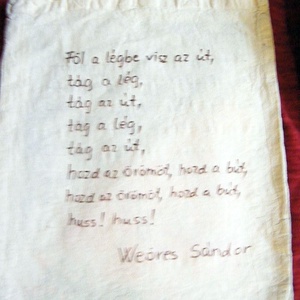 Föl a légbe visz az út,
tág a lég,
tág az út,
tág a lég,
tág az út,
hozd az örömöt, hozd a bút,
hozd az örömöt, hozd a bút,
huss! huss!
Weöres Sándor